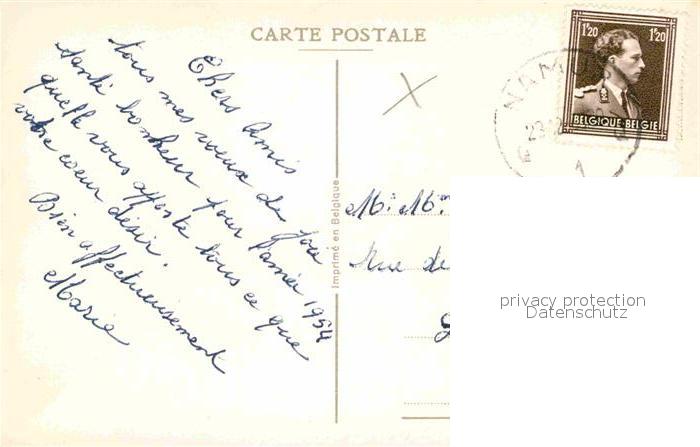 CARTE POSTALE
Chers Amis
tous mes voeux de joie
santé bonheur pour l'année 1954
qu'elle vous apporte tous ce que
votre coeur désir.
Bien affectueusement
Marie
Imprimé en Belgique
1F20 1F20
BELGIQUE-BELGIË
NAMU
23
1
Mr. Mme
Rue de
privacy protection
Datenschutz